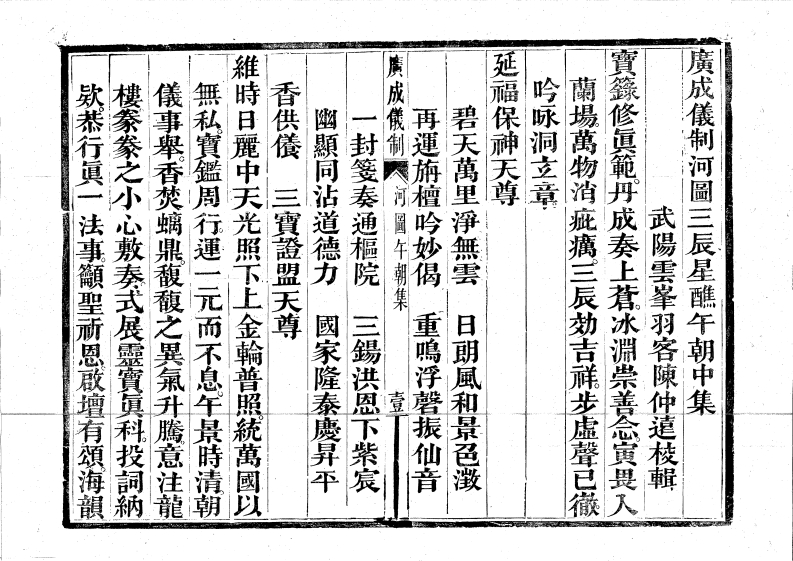 廣成儀制河圖三辰星醮午朝中集
武陽雲峯羽客陳仲遠校輯
寶籙修眞範。丹成奏上蒼。冰淵崇善念。寅畏入
蘭場萬物消疵癘。三辰効吉祥。步虛聲已徹。
吟咏洞玄章
延福保神天尊
碧天萬里淨無雲　日朗風和景色澂
再運旃檀吟妙偈　重鳴浮磬振仙音
廣成儀制　河圖午朝集　壹
一封箋奏通樞院　三錫洪恩下紫宸
幽顯同沾道德力　國家隆泰慶昇平
香供儀　三寶證盟天尊
維時日麗中天光照下土金輪普照。統萬國以
無私。寶鑑周行。運一元而不息。午景時清。朝
儀事舉。香焚螭鼎。馥馥之異氣升騰。意注龍
樓。蓁蓁之小心敷奏。式展靈寶眞科。投詞納
欵。恭行眞一法事。籲聖祈恩啟壇有頌。海韻